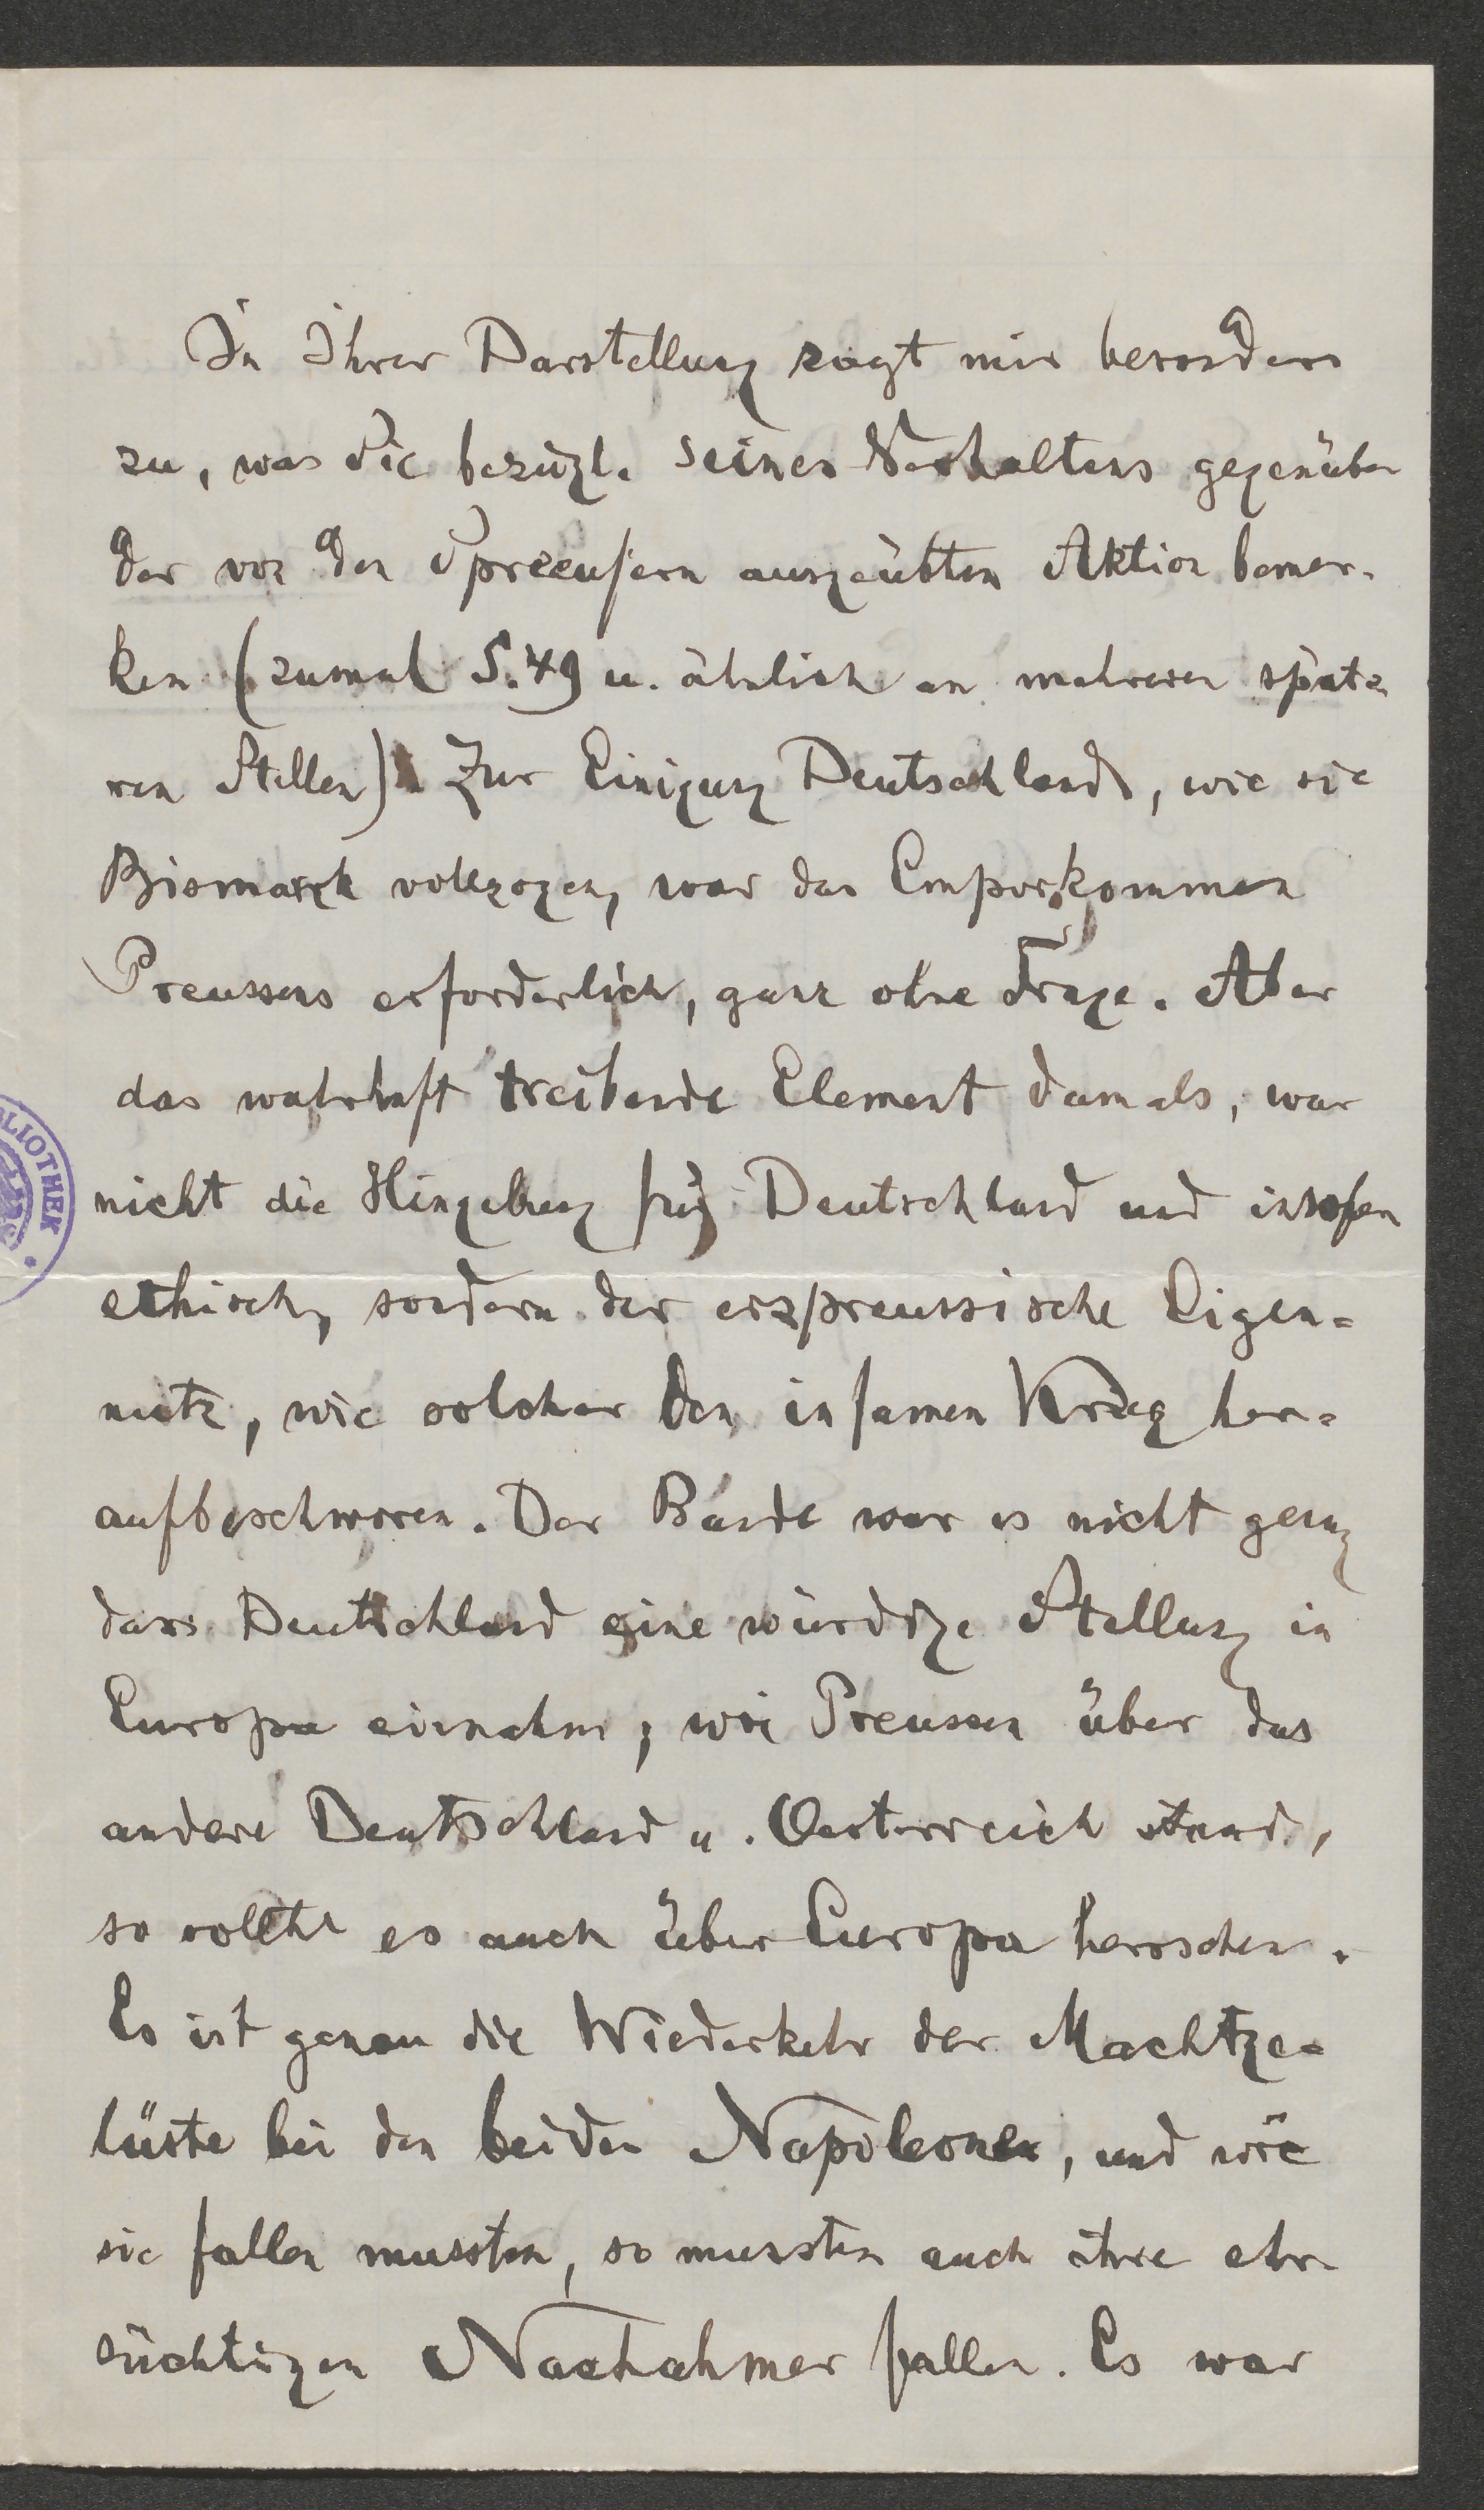 In Ihrer Darstellung sagt mir besonders
zu, was Sie bezügl. seines Verhaltens gegenüber
der von den Spreeufern ausgeübten Aktion bemer-
ken (zumal S. 49 u. ähnlich an mehreren späte-
ren Stellen). Zur Einigung Deutschlands, wie sie
Bismarck vollzogen, war das Emporkommen
Preussens erforderlich, ganz ohne Frage. Aber
das wahrhaft treibende Element damals, war
nicht die Hingebung für Deutschland und insofern
ethisch, sondern der erzpreussische Eigen-
nutz, wie solcher den infamen Krieg her-
aufbeschworen. Der Bande war es nicht genug
dass Deutschland eine würdige Stellung in
Europa einnahm; wie Preussen über das
andere Deutschland u. Oesterreich stand,
so sollte es auch über Europa herrschen.
Es ist genau die Wiederkehr der Machtge-
lüste bei den beiden Napoleonen, und wie
sie fallen mussten, so mussten auch ihre ehr-
süchtigen Nachahmer fallen. Es war
BLIOTHEK